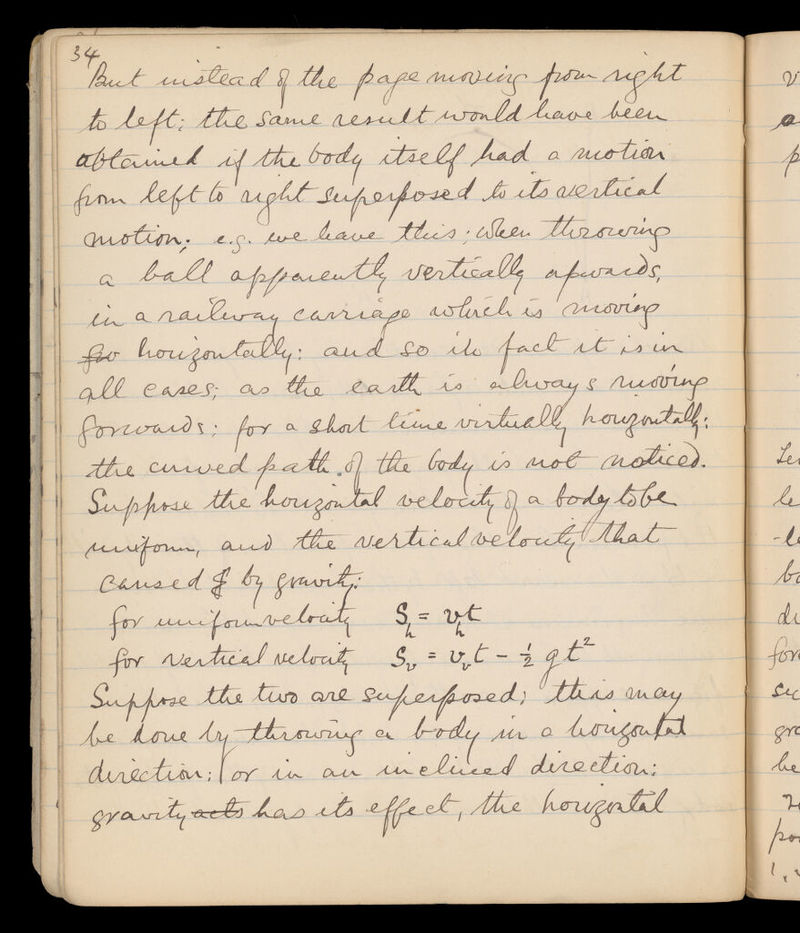 34
But instead of the page moving from right
to left; the same result would have been
obtained if the body itself had a motion
from left to right superposed to its vertical
motion; e.g. we have this; when throwing
a ball apparently vertically upwards,
in a railway carriage which is moving
for horizontally: and so in fact it is in
all cases; as the earth is always moving
forwards; for a short time virtually horizontally:
the curved path of the body is not noticed.
Suppose the horizontal velocity of a body to be
uniform, and the vertical velocity that
caused by gravity:
for uniform velocity S_h = v_h t
for vertical velocity S_v = v_v t - ½ g t²
Suppose the two are superposed; this may
be done by throwing a body in a horizontal
direction; or in an inclined direction:
gravity acts has its effect, the horizontal
v
a
p
le
-le
bo
di
for
su
gra
be
po